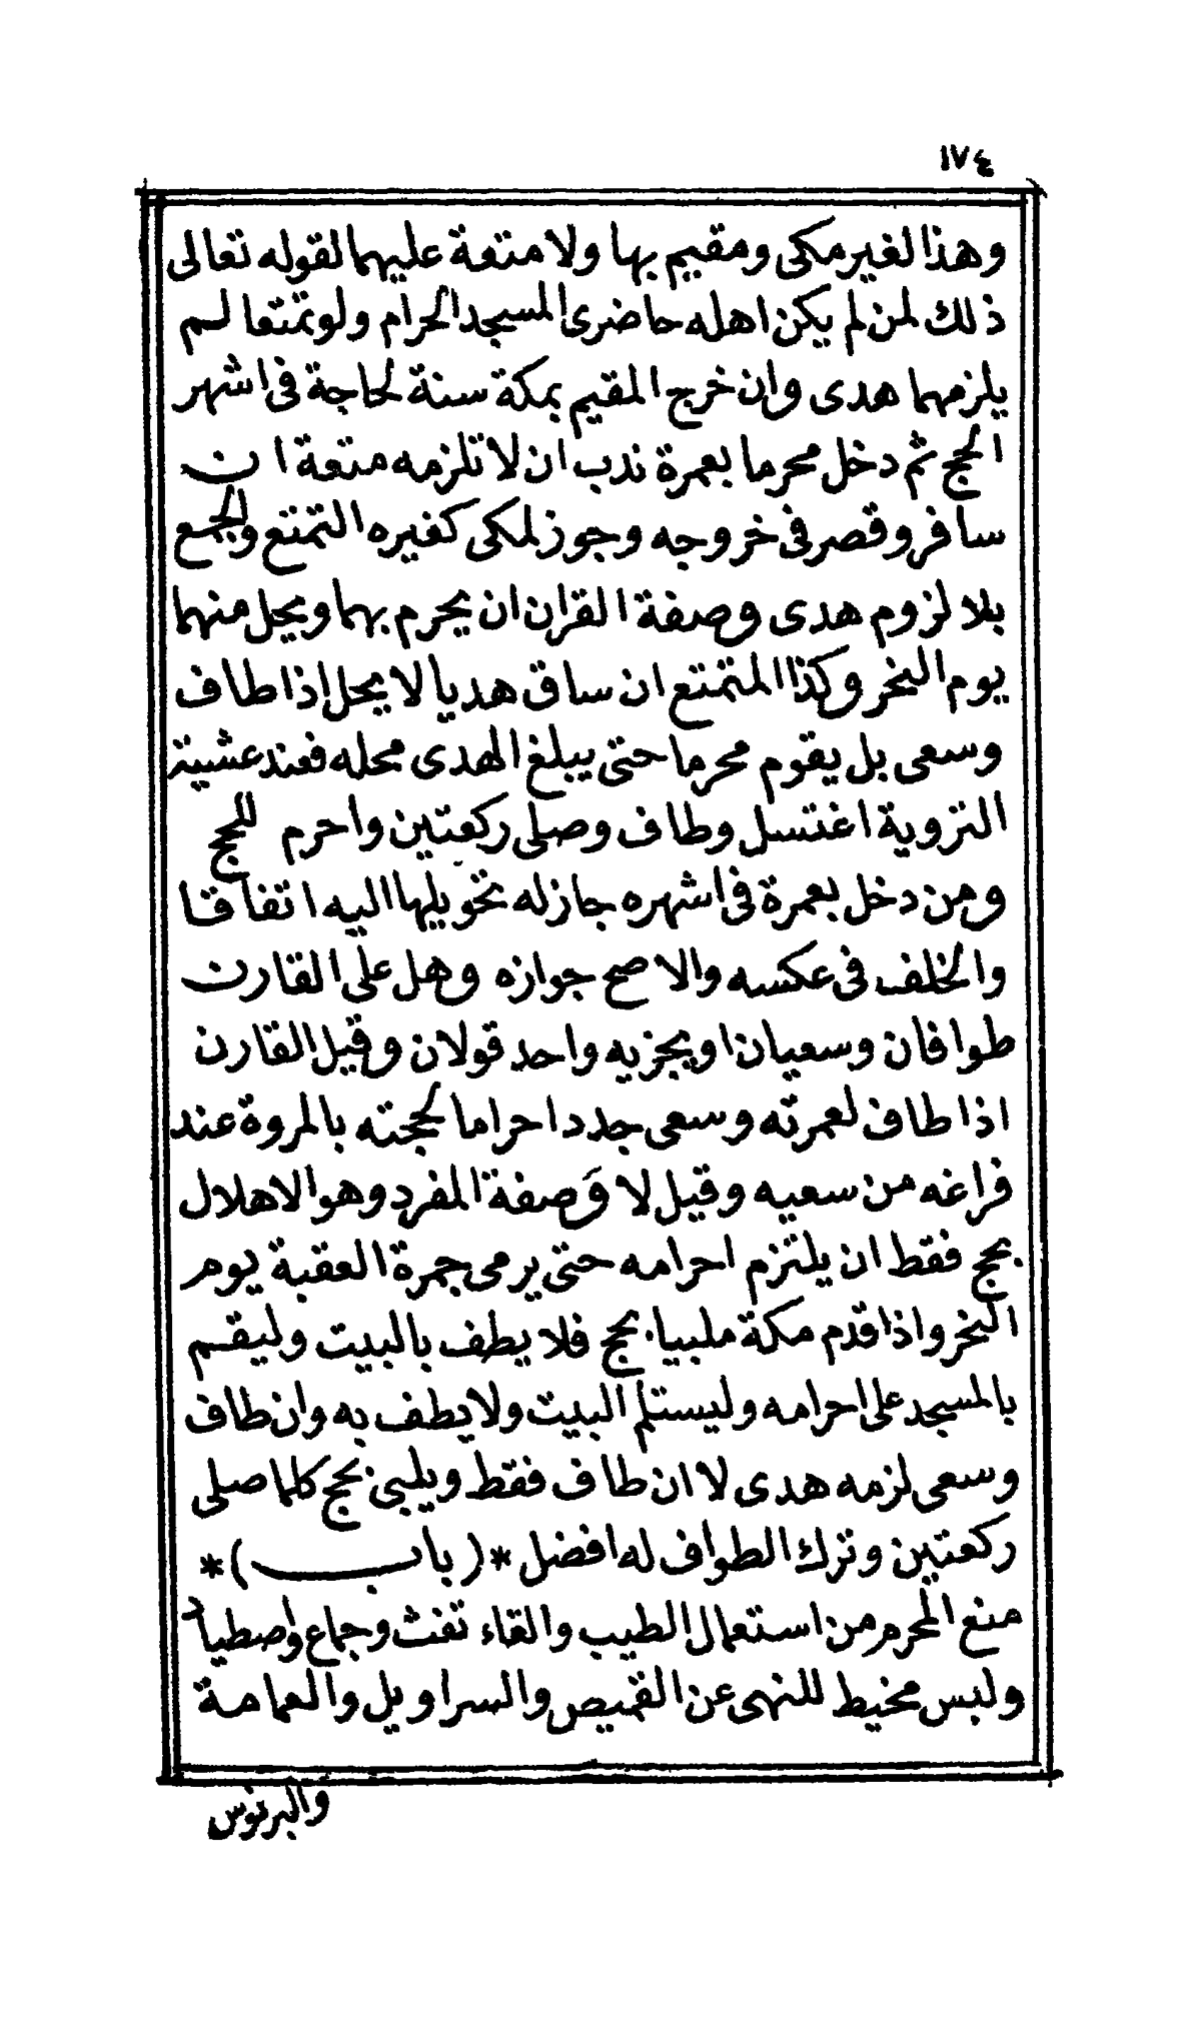 ١٧٤
وهذا لغير مكى ومقيم بها ولا متعة عليهما لقوله تعالى
ذلك لمن لم يكن اهله حاضرى المسجد الحرام ولو تمتعا لم
يلزمهما هدى وان خرج المقيم بمكة سنة لحاجة فى اشهر
الحج ثم دخل محرما بعمرة ندب ان لا تلزمه متعة ان
سافر وقصر فى خروجه وجوز لمكى كغيره التمتع والجمع
بلا لزوم هدى وصفة القران ان يحرم بهما ويحل منهما
يوم النحر وكذا المتمتع ان ساق هديا لا يحل اذا طاف
وسعى بل يقوم محرما حتى يبلغ الهدى محله فعند عشية
التروية اغتسل وطاف وصلى ركعتين واحرم للحج
ومن دخل بعمرة فى اشهره جاز له تحويلها اليه اتفاقا
والخلف فى عكسه والاصح جوازه وهل على القارن
طوافان وسعيان او يجزيه واحد قولان وقيل القارن
اذا طاف لعمرته وسعى جدد احراما لحجته بالمروة عند
فراغه من سعيه وقيل لا وَصفة المفرد وهو الاهلال
بحج فقط ان يلتزم احرامه حتى يرمى جمرة العقبة يوم
النحر واذا قدم مكة ملبيا بحج فلا يطف بالبيت وليقم
بالمسجد على احرامه وليستلم البيت ولا يطف به وان طاف
وسعى لزمه هدى لا ان طاف فقط ويلبى بحج كلما صلى
ركعتين وترك الطواف له افضل *(باب)*
منع المحرم من استعمال الطيب والقاء تفث وجماع واصطياد
ولبس مخيط للنهى عن القميص والسراويل والعمامة
والبرنوس